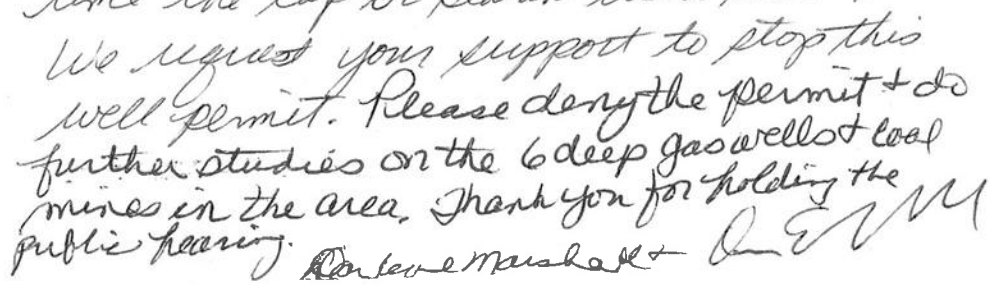 We request your support to stop this
well permit. Please deny the permit + do
further studies on the 6 deep gas wells + coal
mines in the area. Thank you for holding the
public hearing.
Darlene Marshall +